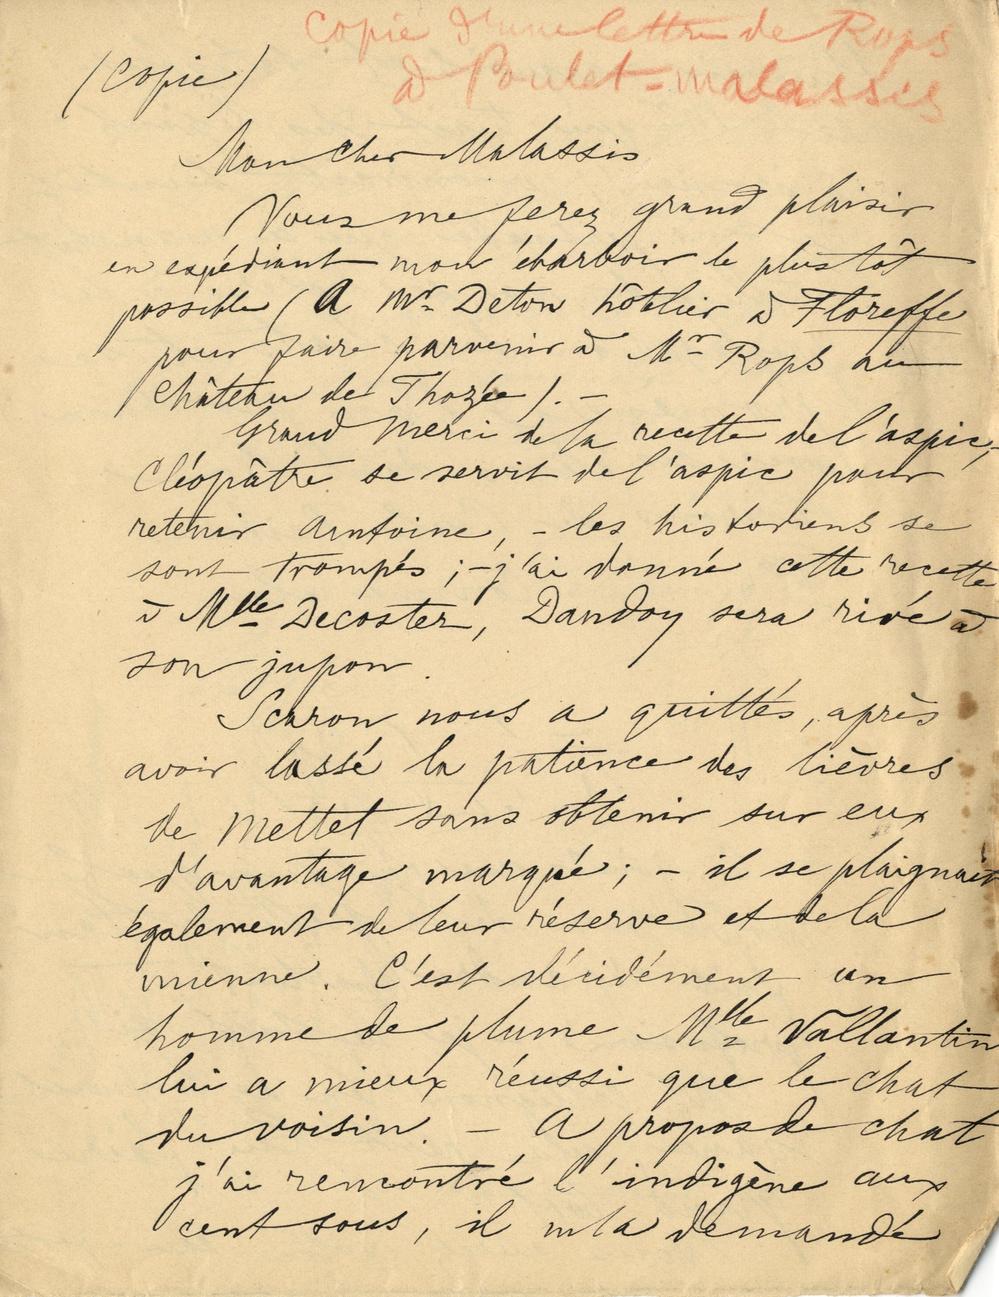 Copie d'une lettre de Rops
à Poulet-malassis
(Copie)
Mon cher Malassis
Vous me ferez grand plaisir
en expédiant mon ébarboir le plustôt
possible (A Mr Deton hôtelier à Floreffe
pour faire parvenir à Mr Rops au
château de Thozée). -
Grand merci de la recette de l'aspic,-
Cléopâtre se servit de l'aspic pour
retenir Antoine, - les historiens se
sont trompés ; - j'ai donné cette recette
à Mlle Decoster, Dandoy sera rivé à
son jupon.
Scaron nous a quittés, après
avoir lassé la patience des lièvres
de Mettet sans obtenir sur eux
d'avantage marqué ; - il se plaignait
également de leur réserve et de la
mienne. C'est décidément un
homme de plume Mlle Vallantin
lui a mieux réussi que le chat
du voisin. - A propos de chat
j'ai rencontré l'indigène aux
cent sous, il m'a demandé